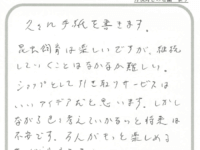 手紙を書きます。
昆虫飼育は楽しいですが、継続
していくことはなかなか難しい。
ショップとして引き取りサービスは
いいアイデアだと思います。しかし
ながら色々考えていかないと将来は
不安です。みんがもっと楽しめる